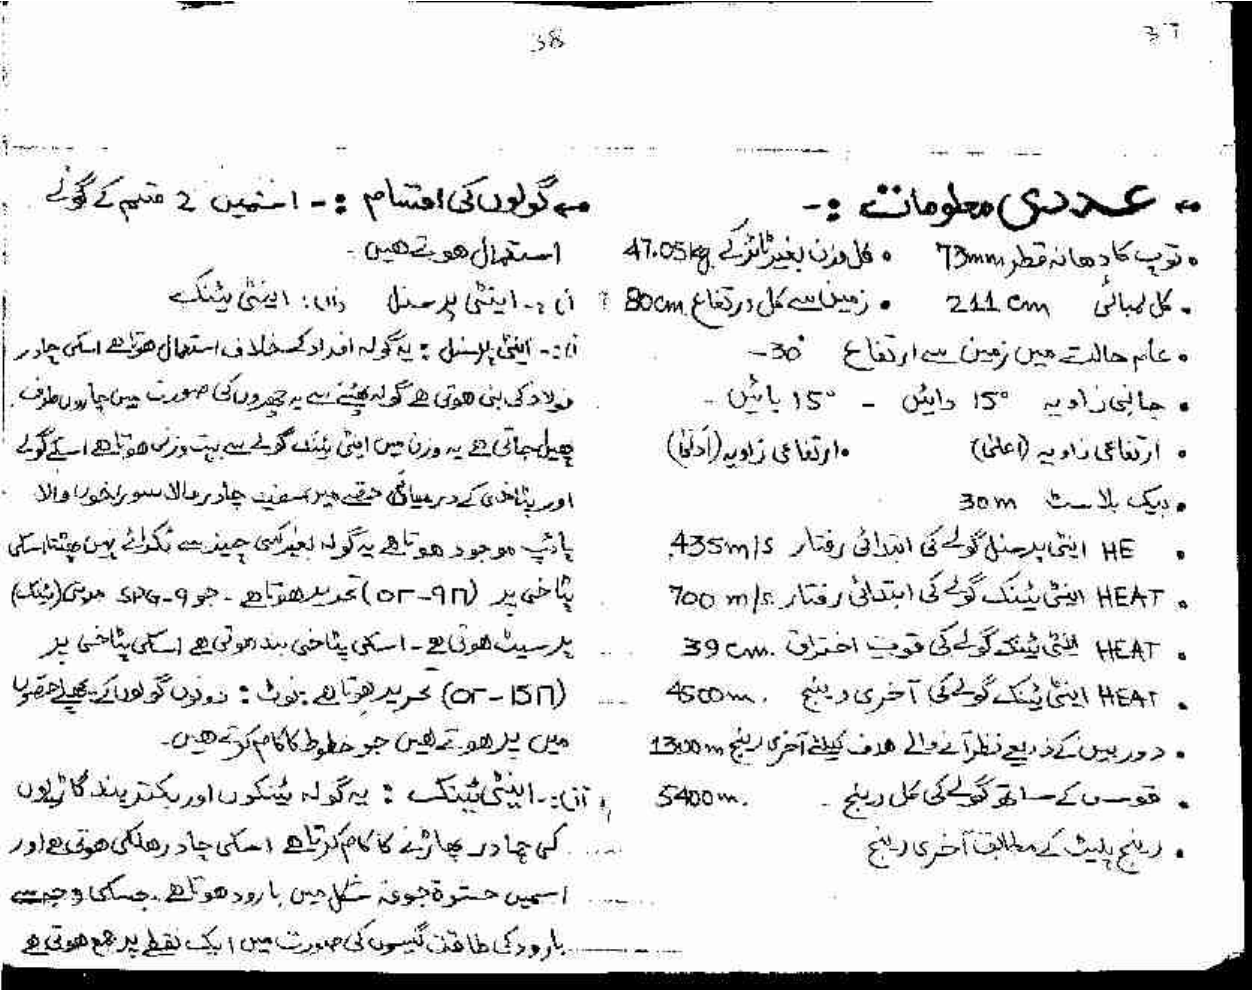 37
عددی معلومات :-
• توپ کا دھانہ قطر 73mm • کل وزن بغیر ٹائر کے 47.05kg
• کل لمبائی 211 cm • زمین سے کل ارتفاع 80cm
• عام حالت میں زمین سے ارتفاع 30° -
• جانبی زاویہ 15° دائیں - 15° بائیں -
• ارتفاعی زاویہ (اعلیٰ) • ارتفاعی زاویہ (ادنیٰ)
• بیک بلاسٹ 30m
• HE اینٹی پرسنل گولے کی ابتدائی رفتار 435m/s
• HEAT اینٹی ٹینک گولے کی ابتدائی رفتار 700 m/s
• HEAT اینٹی ٹینک گولے کی قوت اختراق 39 cm.
• HEAT اینٹی ٹینک گولے کی آخری رینج 4500m.
• دوربین کے ذریعے نظر آنے والے ھدف کیلئے آخری رینج 1300m
• قوس کے ساتھ گولے کی کل رینج 5400m.
• رینج پلیٹ کے مطابق آخری رینج
38
گولوں کی اقسام :- اسمیں 2 قسم کے گولے
استعمال ھوتے ھیں -
(i) :- اینٹی پرسنل (ii) : اینٹی ٹینک
(i) :- اینٹی پرسنل : یہ گولہ افراد کے خلاف استعمال ھوتا ھے اسکی چادر
فولاد کی بنی ھوتی ھے گولہ پھٹنے سے یہ چھروں کی صورت میں چاروں طرف
پھیل جاتی ھے یہ وزن میں اینٹی ٹینک گولے سے بہت وزنی ھوتا ھے اسکے گولے
اور پٹاخی کے درمیانی حصے میں سفید چادر والا سوراخوں والا
پائپ موجود ھوتا ھے یہ گولہ بغیر کسی چیز سے ٹکرائے نہیں پھٹتا اسکی
پٹاخی پر (ОГ-9П) تحریر ھوتا ھے - جو SPG-9 میں (ٹینک)
پر سیٹ ھوتی ھے - اسکی پٹاخی بند ھوتی ھے اسکی پٹاخی پر
(ОГ-15П) تحریر ھوتا ھے نوٹ : دونوں گولوں کے پچھلے حصوں
میں پر ھوتے ھیں جو خطوط کا کام کرتے ھیں -
(ii) :- اینٹی ٹینک : یہ گولہ ٹینکوں اور بکتر بند گاڑیوں
کی چادر پھاڑنے کا کام کرتا ھے اسکی چادر ھلکی ھوتی ھے اور
اسمیں حشوۃ جوفہ شکل میں بارود ھوتا ھے - جسکی وجہ سے
بارود کی طاقت گیسوں کی صورت میں ایک نقطے پر جمع ھوتی ھے